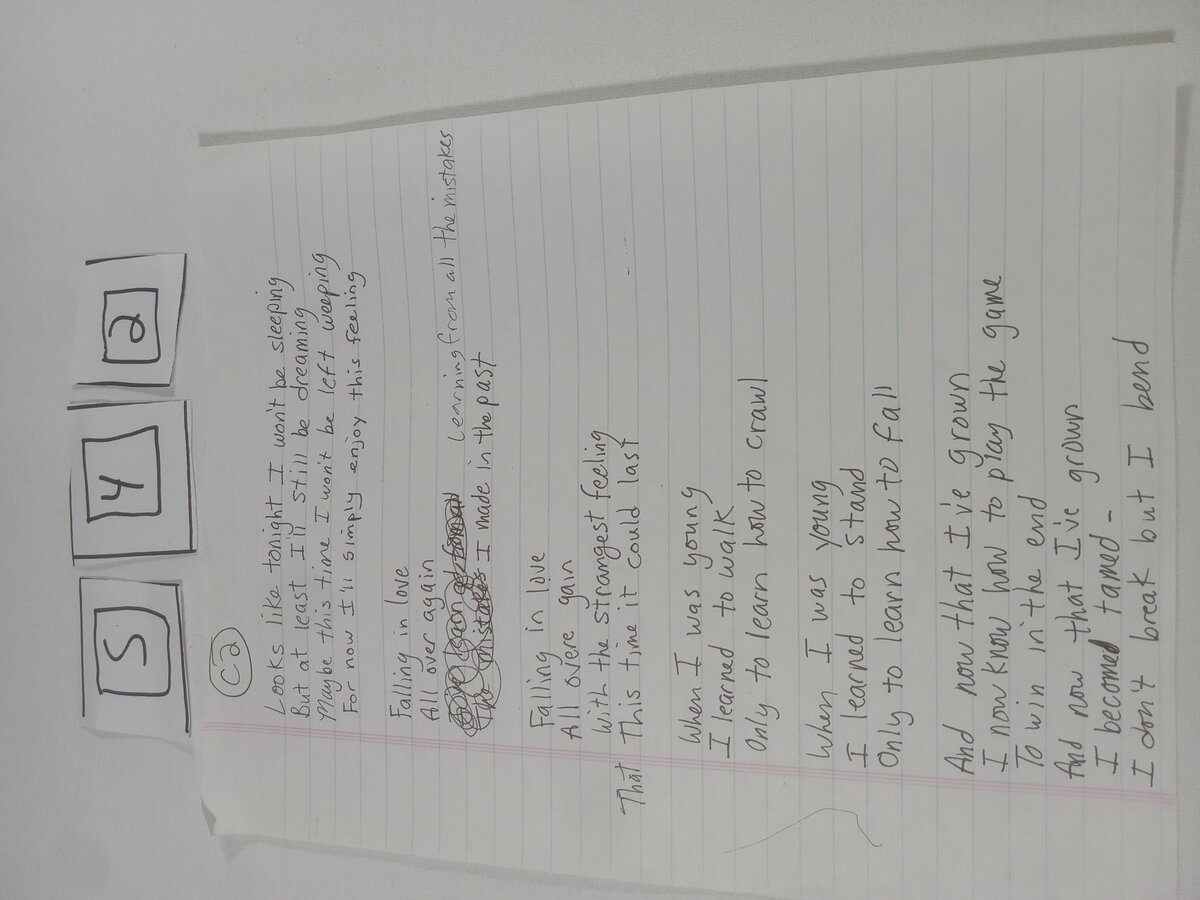 5 4 2
C2
Looks like tonight I won't be sleeping
But at least I'll still be dreaming
Maybe this time I won't be left weeping
For now I'll simply enjoy this feeling
Falling in love
All over again
Learning from all the mistakes
I made in the past
Falling in love
All overe gain
with the strangest feeling
That This time it could last
When I was young
I learned to walk
Only to learn how to crawl
When I was young
I learned to stand
Only to learn how to fall
And now that I've grown
I now know how to play the game
To win in the end
And now that I've grown
I becomed tamed -
I don't break but I bend